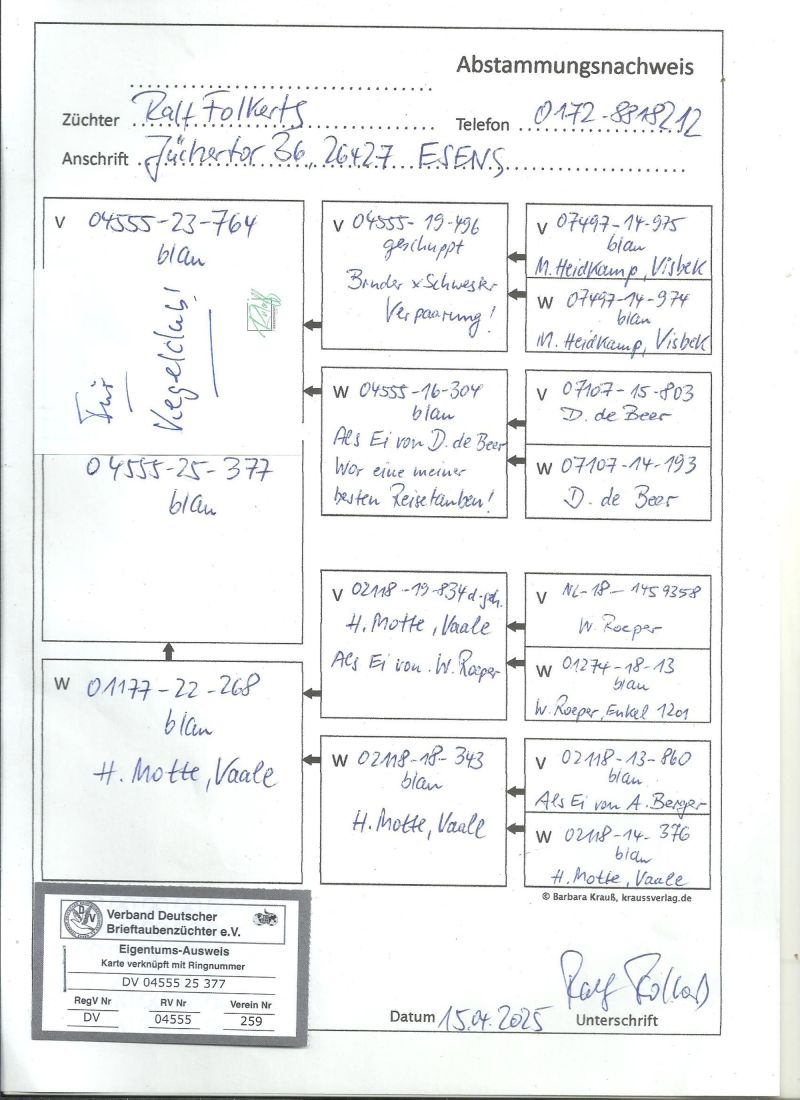 Abstammungsnachweis
Züchter Ralf Folkerts
Telefon 0172-8818212
Anschrift Jüchertor 36, 26427 ESENS
V 04555-23-764
blau
Für
Kegelclub!
04555-25-377
blau
W 01177-22-268
blau
H. Motte, Vaale
V 04555-19-496
geschuppt
Bruder x Schwester
Verpaarung!
W 04555-16-304
blau
Als Ei von D. de Beer
War eine meiner
besten Reisetauben!
V 02118-19-834 d-gh.
H. Motte, Vaale
Als Ei von W. Roeper
W 02118-18-343
blau
H. Motte, Vaale
V 07497-14-975
blau
M. Heidkamp, Visbek
W 07497-14-974
blau
M. Heidkamp, Visbek
V 07107-15-803
D. de Beer
W 07107-14-193
D. de Beer
V NL-18-1459358
W. Roeper
W 01274-18-13
blau
W. Roeper, Enkel 1201
V 02118-13-860
blau
Als Ei von A. Berger
W 02118-14-376
blau
H. Motte, Vaale
© Barbara Krauß, kraussverlag.de
Verband Deutscher
Brieftaubenzüchter e.V.
Eigentums-Ausweis
Karte verknüpft mit Ringnummer
DV 04555 25 377
RegV Nr RV Nr Verein Nr
DV 04555 259
Datum 15.04.2025
Unterschrift